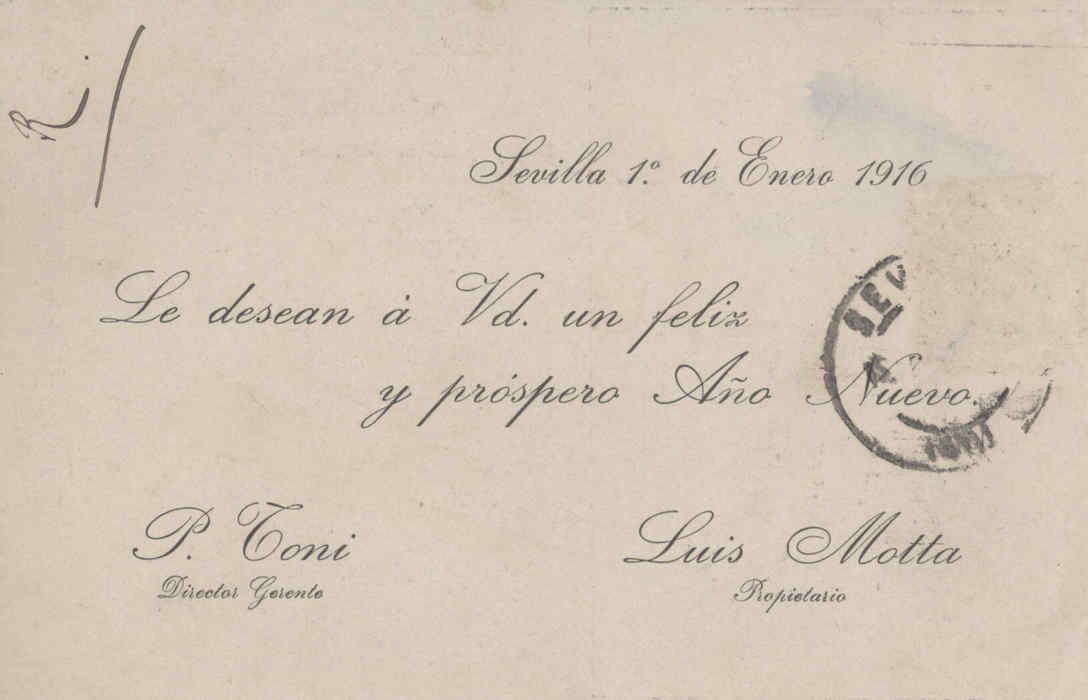 R.
Sevilla 1.º de Enero 1916
Le desean á Vd. un feliz
y próspero Año Nuevo.
P. Toni
Director Gerente
Luis Motta
Propietario
SEV